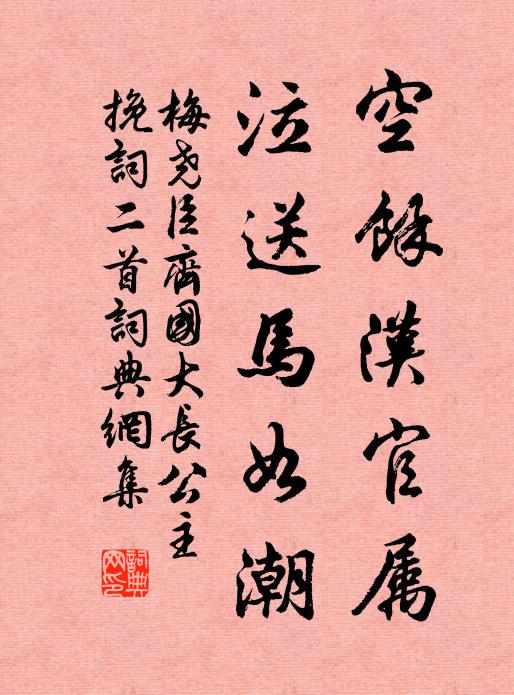 空餘漢官属
泣送馬如潮
梅尧臣齊國大長公主
挽詞二首詞典網集
詞典网印